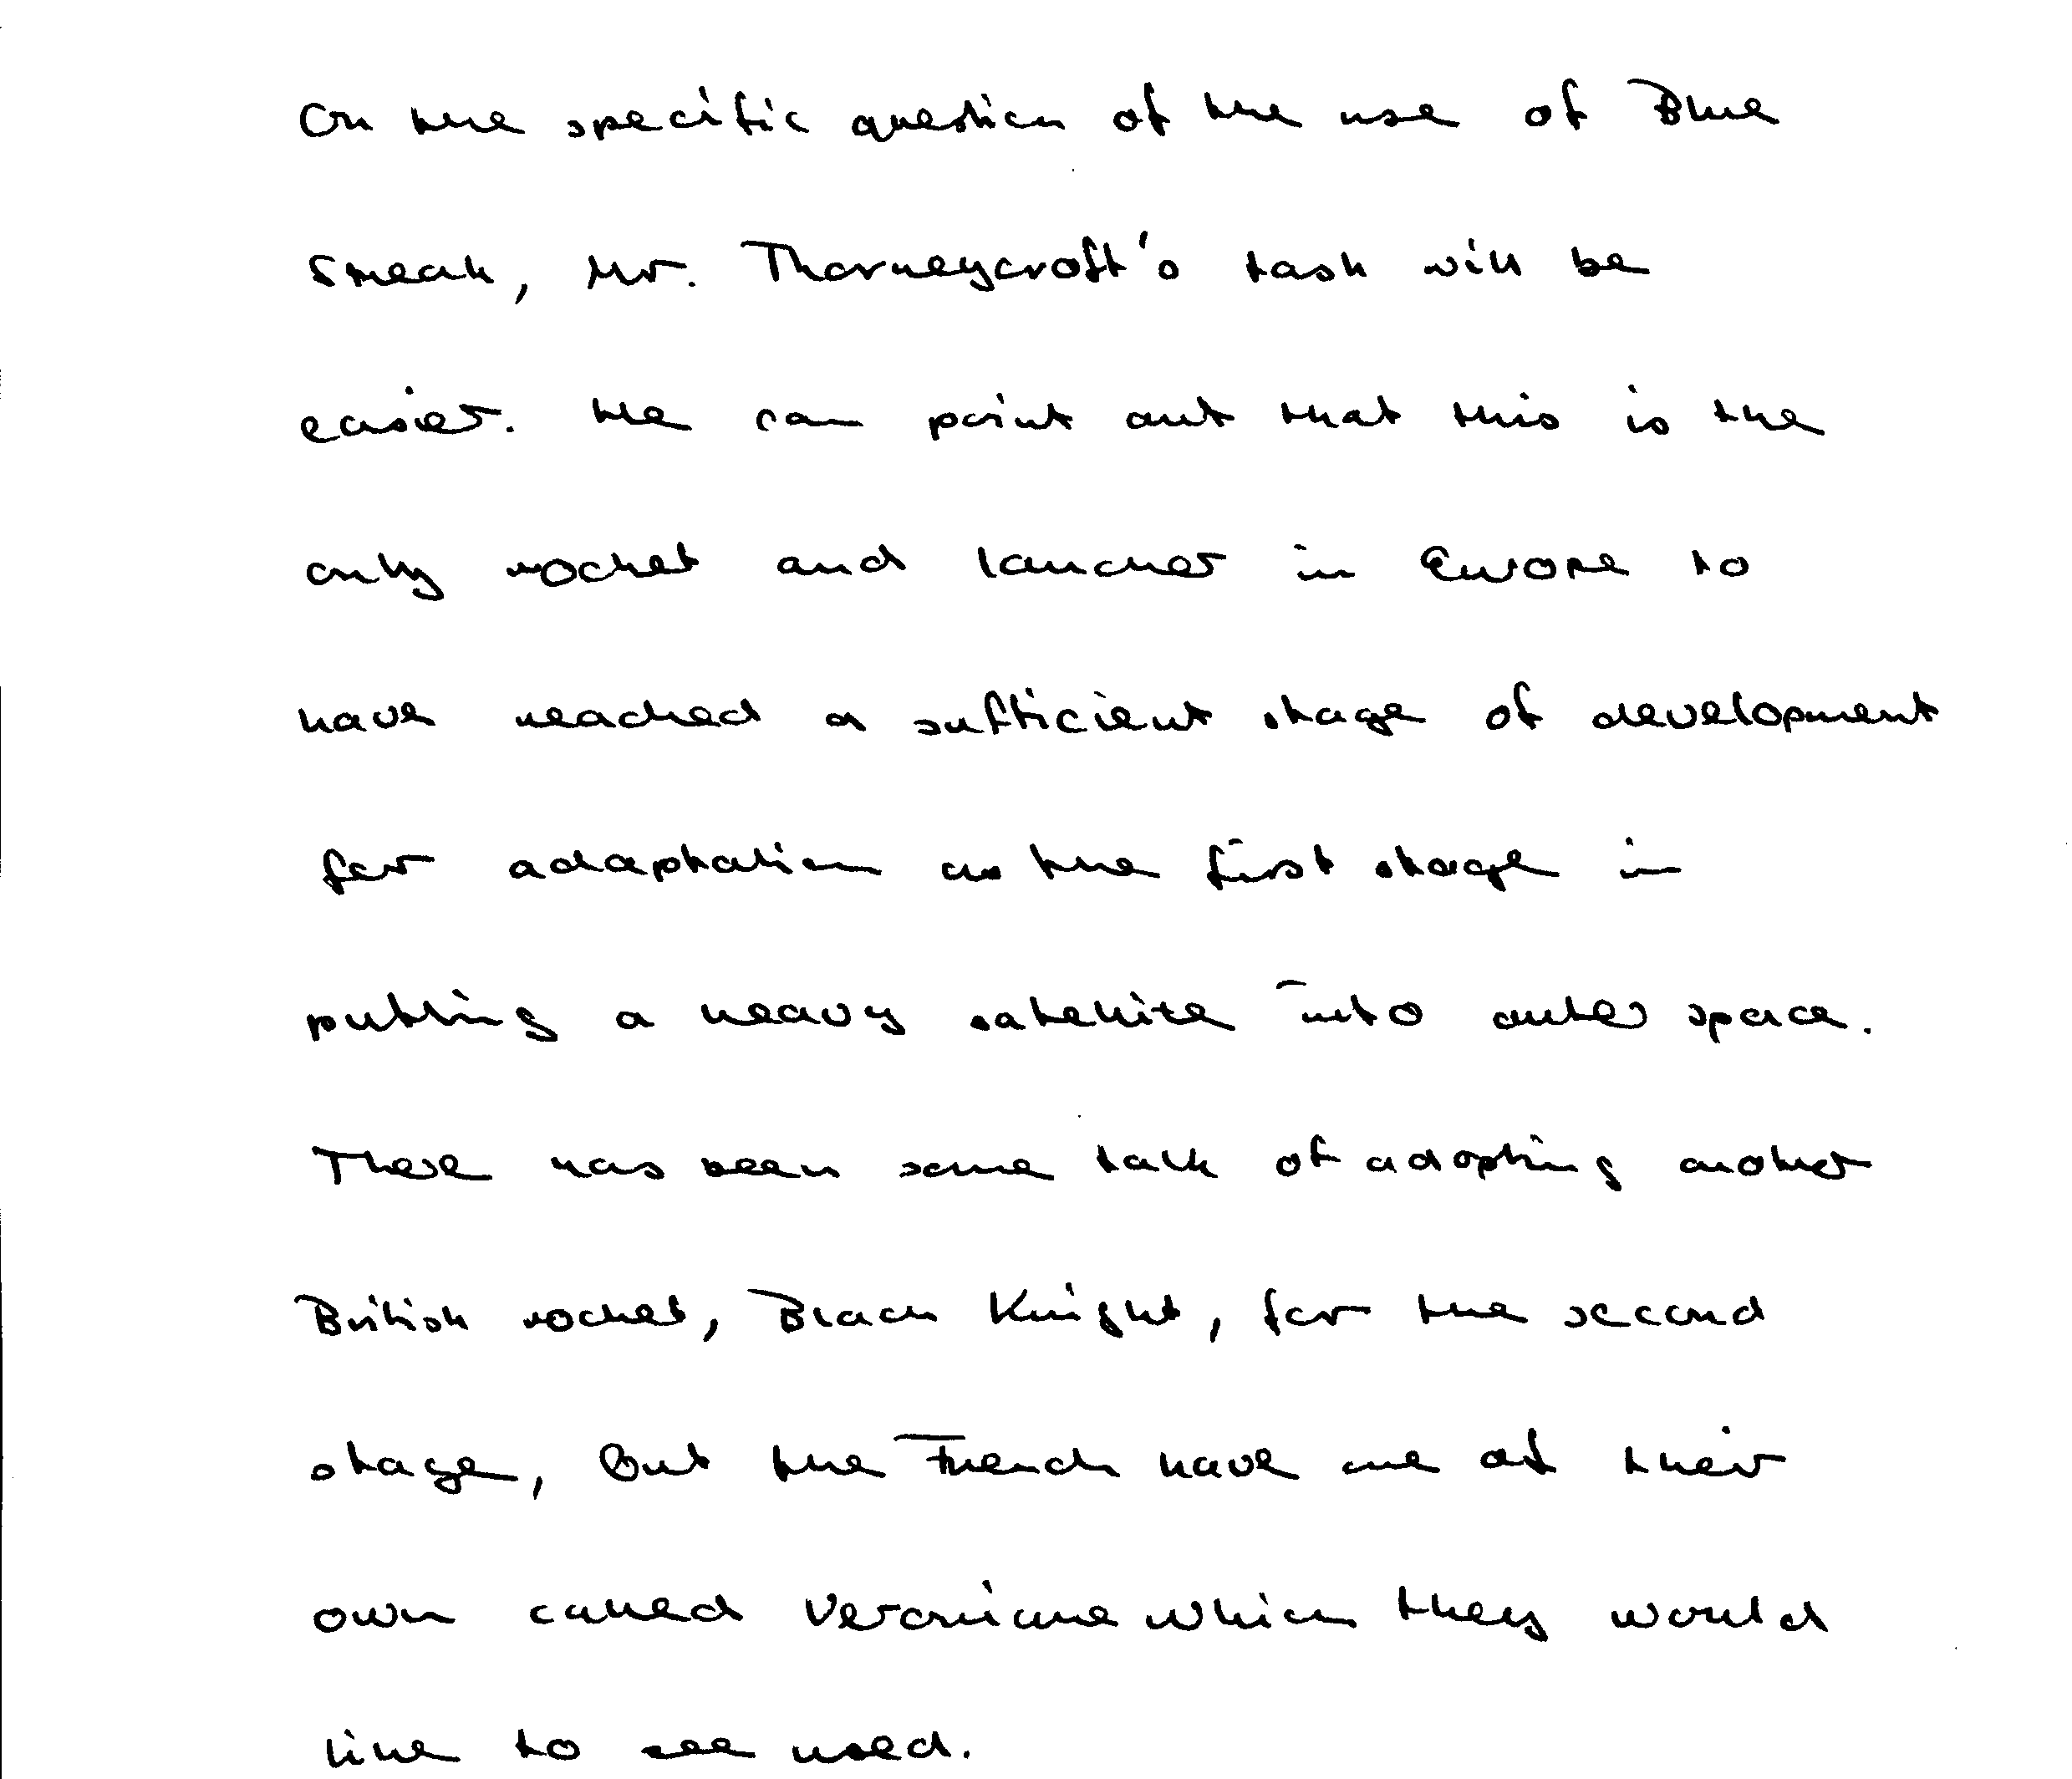 On the specific question of the use of Blue
Streak, Mr. Thorneycroft's task will be
easier. He can point out that this is the
only rocket and launcher in Europe to
have reached a sufficient stage of development
for adaptation as the first stage in
putting a heavy satellite into outer space.
There has been some talk of adopting another
British rocket, Black Knight, for the second
stage, but the French have one of their
own called Veronique which they would
like to see used.